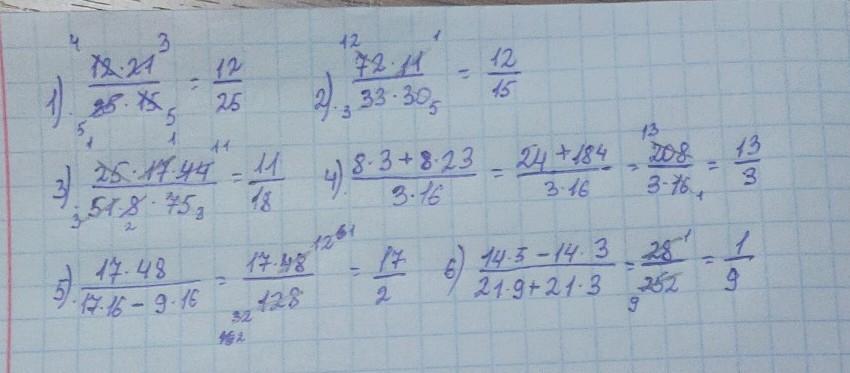 1). 12·21 / 35·15 = 12/25 2). 72·11 / 33·30 = 12/15
3). 25·17·44 / 51·8·75 = 11/18 4). 8·3+8·23 / 3·16 = 24+184 / 3·16 = 208 / 3·16 = 13/3
5). 17·48 / 17·16-9·16 = 17·48 / 128 = 17/2 6) 14·5-14·3 / 21·9+21·3 = 28/252 = 1/9